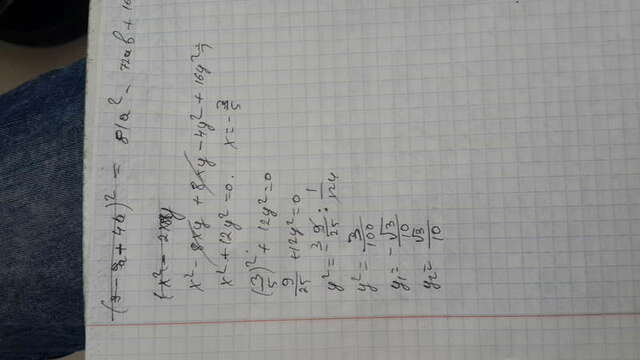 (3 - a + 4b)² = 81a² - 72ab + 16
(x² - 2
x² - 8xy + 8xy - 4y² + 16y² =
x² + 12y² = 0. x = - 3/5
(3/5)² + 12y² = 0
9/25 + 12y² = 0
y² = - 9/25 :
y² = 3/100
y₁ = - √3/10
y₂ = √3/10